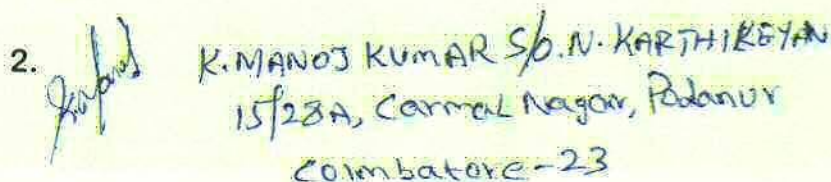 2. K. MANOJ KUMAR S/O. N. KARTHIKEYAN
15/28A, Carmal Nagar, Podanur
Coimbatore-23